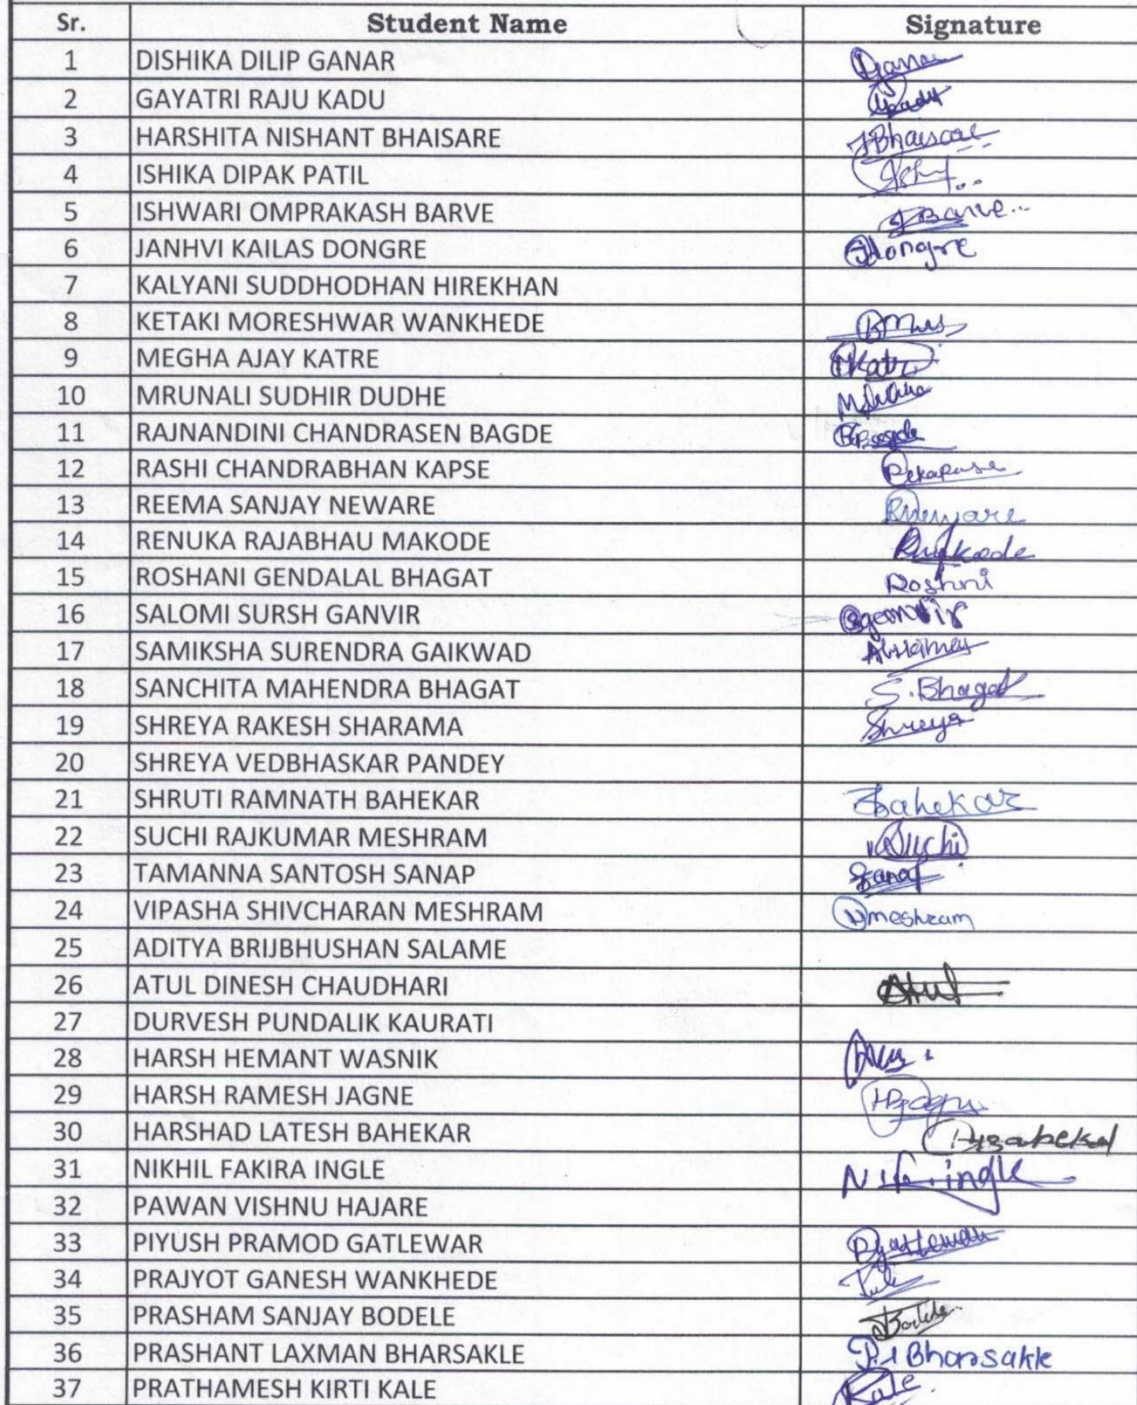 Sr. Student Name Signature
1 DISHIKA DILIP GANAR Ganar
2 GAYATRI RAJU KADU
3 HARSHITA NISHANT BHAISARE HBhaisare
4 ISHIKA DIPAK PATIL
5 ISHWARI OMPRAKASH BARVE I Barve
6 JANHVI KAILAS DONGRE JDongre
7 KALYANI SUDDHODHAN HIREKHAN
8 KETAKI MORESHWAR WANKHEDE
9 MEGHA AJAY KATRE MKatre
10 MRUNALI SUDHIR DUDHE
11 RAJNANDINI CHANDRASEN BAGDE RBagde
12 RASHI CHANDRABHAN KAPSE
13 REEMA SANJAY NEWARE RNeware
14 RENUKA RAJABHAU MAKODE
15 ROSHANI GENDALAL BHAGAT Roshni
16 SALOMI SURSH GANVIR Sganvir
17 SAMIKSHA SURENDRA GAIKWAD
18 SANCHITA MAHENDRA BHAGAT S.Bhagat
19 SHREYA RAKESH SHARAMA Shreya
20 SHREYA VEDBHASKAR PANDEY
21 SHRUTI RAMNATH BAHEKAR SBahekar
22 SUCHI RAJKUMAR MESHRAM Suchi
23 TAMANNA SANTOSH SANAP Sanap
24 VIPASHA SHIVCHARAN MESHRAM Vmeshram
25 ADITYA BRIJBHUSHAN SALAME
26 ATUL DINESH CHAUDHARI Atul
27 DURVESH PUNDALIK KAURATI
28 HARSH HEMANT WASNIK
29 HARSH RAMESH JAGNE HRJagne
30 HARSHAD LATESH BAHEKAR
31 NIKHIL FAKIRA INGLE N.F.ingle
32 PAWAN VISHNU HAJARE
33 PIYUSH PRAMOD GATLEWAR
34 PRAJYOT GANESH WANKHEDE
35 PRASHAM SANJAY BODELE
36 PRASHANT LAXMAN BHARSAKLE P.L Bharsakle
37 PRATHAMESH KIRTI KALE Kale